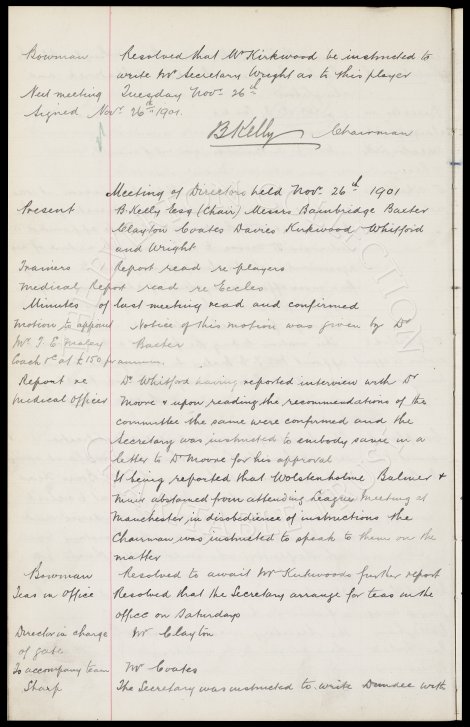 Bowman Resolved that Mr Kirkwood be instructed to
write Mr Secretary Wright as to this player
Next meeting Tuesday Nov. 26th
Signed Novr 26th 1901.
B Kelly Chairman
Meeting of Directors held Novr 26th 1901
Present B. Kelly Esq (Chair) Messrs Bainbridge Baxter
Clayton Coates Davies Kirkwood Whitford
and Wright
Trainers Report read re players
Medical Report read re Eccles
Minutes of last meeting read and confirmed
Motion to appoint Notice of this motion was given by Dr
Mr. T. E. Maley Baxter
Coach &c at £150 per annum.
Report re Dr Whitford having reported interview with Dr
Medical Officer Moore & upon reading the recommendations of the
committee the same were confirmed and the
Secretary was instructed to embody same in a
letter to Dr Moore for his approval
It being reported that Wolstenholme Balmer &
Muir abstained from attending League Meeting at
Manchester in disobedience of instructions the
Chairman was instructed to speak to them on the
matter
Bowman Resolved to await Mr Kirkwoods further report
Teas in Office Resolved that the Secretary arrange for teas in the
office on Saturdays
Director in charge Mr Clayton
of gate
To accompany team Mr Coates
Sharp The Secretary was instructed to write Dundee with